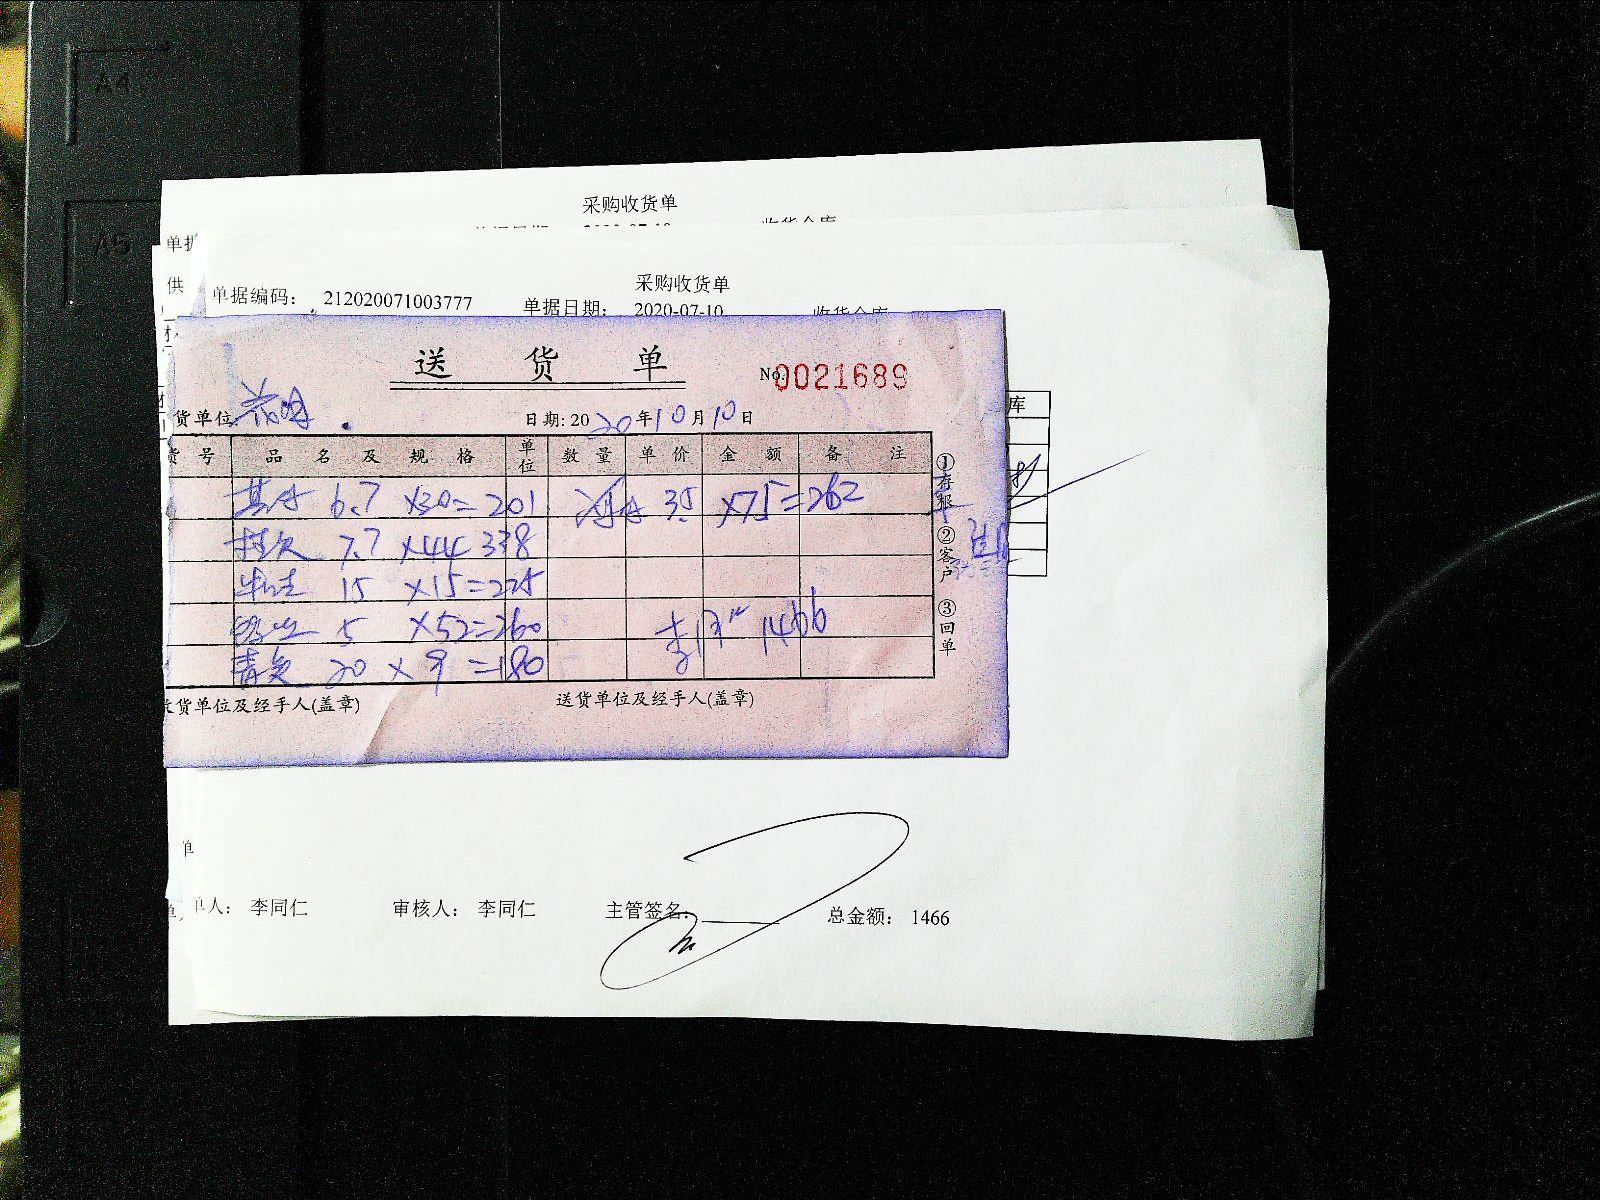 A4
A5
采购收货单
2020-07-10
单据
供
采购收货单
单据编码： 212020071003777 单据日期： 2020-07-10 收货仓库
送 货 单
No.0021689
货单位:
日期: 2020年10月10日
货 号 品 名 及 规 格 单位 数 量 单 价 金 额 备 注
6.7 ×30=201 35 ×75=262
7.7 ×44 338
15 ×15=225
5 ×52=260 1466
青 20 × 9 =180
①存根 ②客户 ③回单
货单位及经手人(盖章) 送货单位及经手人(盖章)
库
单
单人： 李同仁 审核人： 李同仁 主管签名: 总金额： 1466